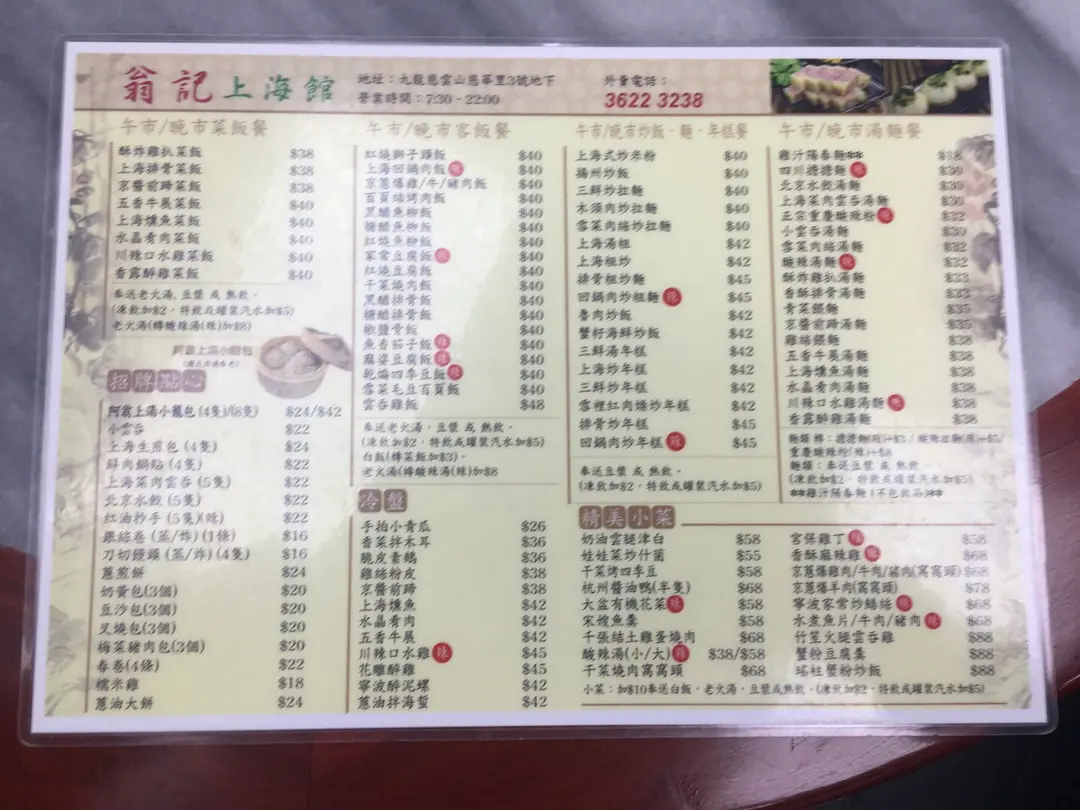 翁記上海館
地址：九龍慈雲山慈華里3號地下
營業時間：7:30 - 22:00
外賣電話：
3622 3238
午市/晚市菜飯餐
酥炸雞扒菜飯 $38
上海排骨菜飯 $38
京醬前蹄菜飯 $38
五香牛展菜飯 $40
上海燻魚菜飯 $40
水晶肴肉菜飯 $40
川辣口水雞菜飯 $40
香露醉雞菜飯 $40
奉送老火湯,豆漿 或 熱飲。
(凍飲加$2，特飲或罐裝汽水加$5)
老火湯(轉酸辣湯(辣)加$8)
阿翁上湯小籠包
招牌點心
阿翁上湯小籠包 (4隻)/(8隻) $24/$42
小雲吞 $22
上海生煎包 (4隻) $24
鮮肉鍋貼 (4隻) $22
上海菜肉雲吞 (5隻) $22
北京水餃 (5隻) $22
紅油抄手 (5隻)(辣) $22
銀絲卷 (蒸/炸) (1條) $16
刀切饅頭 (蒸/炸) (4隻) $16
蔥煎餅 $24
奶黃包(3個) $20
豆沙包(3個) $20
叉燒包(3個) $20
梅菜豬肉包(3個) $20
春卷(4條) $22
糯米雞 $18
蔥油大餅 $24
午市/晚市客飯餐
紅燒獅子頭飯 $40
上海回鍋肉飯 辣 $40
京蔥爆雞/牛/豬肉飯 $40
百頁結烤肉飯 $40
黑醋魚柳飯 $40
糖醋魚柳飯 $40
紅燒魚柳飯 $40
家常豆腐飯 辣 $40
紅燒豆腐飯 $40
干菜燒肉飯 $40
黑醋排骨飯 $40
糖醋排骨飯 $40
椒鹽骨飯 $40
魚香茄子飯 辣 $40
麻婆豆腐飯 辣 $40
乾煸四季豆飯 辣 $40
雪菜毛豆百頁飯 $40
雲吞雞飯 $48
奉送老火湯，豆漿 或 熱飲。
(凍飲加$2，特飲或罐裝汽水加$5)
白飯(轉菜飯加$3)。
老火湯(轉酸辣湯(辣)加$8
冷盤
手拍小青瓜 $26
香菜拌木耳 $36
脆皮素鵝 $36
雞絲粉皮 $38
京醬前蹄 $38
上海燻魚 $42
水晶肴肉 $42
五香牛展 $42
川辣口水雞 辣 $45
花雕醉雞 $45
寧波醉泥螺 $42
蔥油拌海蜇 $42
午市/晚市炒飯、麵、年糕餐
上海式炒米粉 $40
揚州炒飯 $40
三鮮炒拉麵 $40
木須肉炒拉麵 $40
雪菜肉絲炒拉麵 $40
上海湯粗 $42
上海粗炒 $42
排骨粗炒麵 $45
回鍋肉炒粗麵 辣 $45
魯肉炒飯 $42
蟹籽海鮮炒飯 $42
三鮮湯年糕 $42
上海炒年糕 $42
三鮮炒年糕 $42
雪裡紅肉燥炒年糕 $42
排骨炒年糕 $45
回鍋肉炒年糕 辣 $45
奉送豆漿 或 熱飲。
(凍飲加$2，特飲或罐裝汽水加$5)
午市/晚市湯麵餐
雞汁陽春麵** $18
四川擔擔麵 辣 $30
北京水餃湯麵 $30
上海菜肉雲吞湯麵 $30
正宗重慶酸辣粉 辣 $32
小雲吞湯麵 $30
雪菜肉絲湯麵 $32
酸辣湯麵 辣 $32
酥炸雞扒湯麵 $33
香酥排骨湯麵 $33
青菜餵麵 $35
京醬前蹄湯麵 $35
雞絲餵麵 $38
五香牛展湯麵 $38
上海燻魚湯麵 $38
水晶肴肉湯麵 $38
川辣口水雞湯麵 辣 $38
香露醉雞湯麵 $38
麵類 轉：擔擔麵(辣)+$3 / 酸辣拉麵(辣)+$5/
重慶酸辣粉(辣)+$8
麵類：奉送豆漿 或 熱飲。
(凍飲加$2，特飲或罐裝汽水加$5)
**雞汁陽春麵 (不包飲品)**
精美小菜
奶油雲腿津白 $58
娃娃菜炒什菌 $55
干菜烤四季豆 $58
杭州醬油鴨(半隻) $68
大盆有機花菜 辣 $58
宋嫂魚羹 $58
千張結土雞蛋燒肉 $68
酸辣湯(小/大) 辣 $38/$58
干菜燒肉窩窩頭 $68
宮保雞丁 辣 $58
香酥麻辣雞 辣 $68
京蔥爆雞肉/牛肉/豬肉(窩窩頭) $68
京蔥爆羊肉(窩窩頭) $78
寧波家常炒鱔絲 辣 $68
水煮魚片/牛肉/豬肉 辣 $68
竹笙火腿雲吞雞 $88
蟹粉豆腐羹 $88
瑤柱蟹粉炒飯 $88
小菜：加$10奉送白飯，老火湯，豆漿或熱飲。(凍飲加$2，特飲或罐裝汽水加$5)